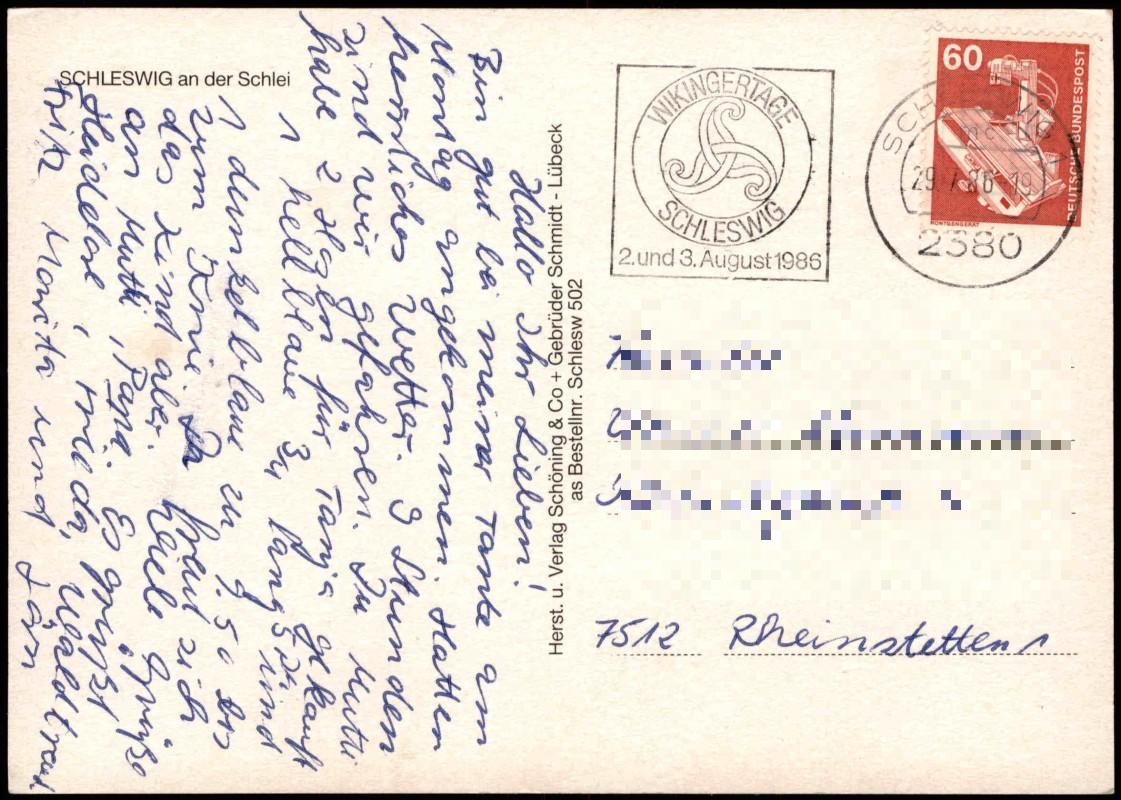 SCHLESWIG an der Schlei
Hallo Ihr Lieben!
Bin gut bei meiner Tante am
Montag angekommen. Hatten
herrliches Wetter. 9 Stunden
sind wir gefahren. Du Mutti
habe 2 Hosen für Tanja gekauft
1 hellblaue 3/4 lang und
1 dunkelblaue zu 9.50 bis
zum Knie. Da freut sich
das Kind aber. Viele Grüße
an Mutti, Papa. Es grüßt
Heidelore, Frieda, Waldtraut
Fritz Marita und
Herst. u. Verlag Schöning & Co + Gebrüder Schmidt - Lübeck
as Bestellnr. Schlesw 502
WIKINGERTAGE
SCHLESWIG
2. und 3. August 1986
60
DEUTSCHE BUNDESPOST
RÖNTGENGERÄT
SCHLESWIG 1
mc
29.7.86-19
2380
7512 Rheinstetten 1